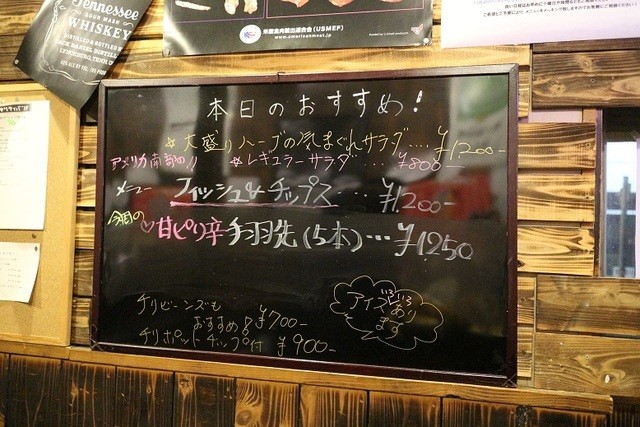 Tennessee
SOUR MASH
WHISKEY
米国食肉輸出連合会 (USMEF)
www.americanmeat.jp
本日のおすすめ!
☆大盛りハーブの気まぐれサラダ....¥1,200-
アメリカ南部の!! ☆レギュラーサラダ...¥800-
メニュー フィッシュ&チップス...¥1,200-
今週の ♡甘ピリ辛手羽先(5本)...¥1250
チリビーンズも
おすすめ! ¥700-
チリポットチップ付 ¥900-
アイス
いろいろ
あり
ます